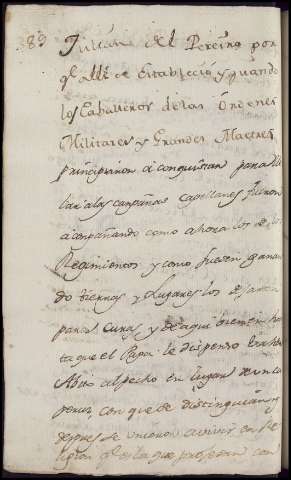 89
Julian del Pereiro por
q.e alli se Estableció y quando
los Caballeros de las Ordenes
Militares y Grandes Maestres
principiaron a conquistar para
las canpañas Capellanes fueron
aconpañando como ahora los de los
Regimientos y como fuesen ganan
do tierras y Lugares los
para Curas y de aqui
ta que el Papa le dispenso
Abito al pecho en lugar de un ca
con que se distinguian y
despues se unieron a vivir en Re
q.e es la que profesan con